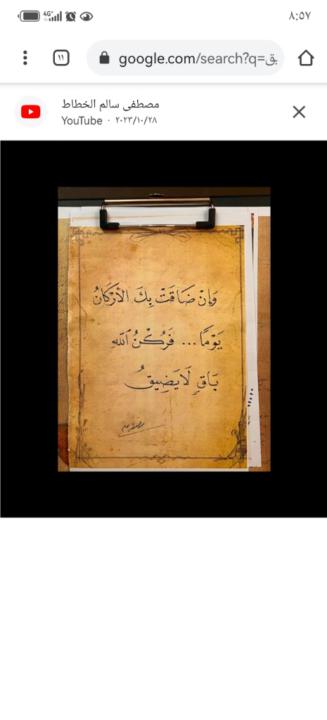 ٨:٥٧
4G+
١١
google.com/search?q=بق
مصطفى سالم الخطاط
YouTube · ٢٠٢٣/١٠/٢٨
وَإِنْ ضَاقَتْ بِكَ الأَرْكَانُ
يَوْمًا... فَرُكْنُ اللهِ
بَاقٍ لَا يَضِيقُ